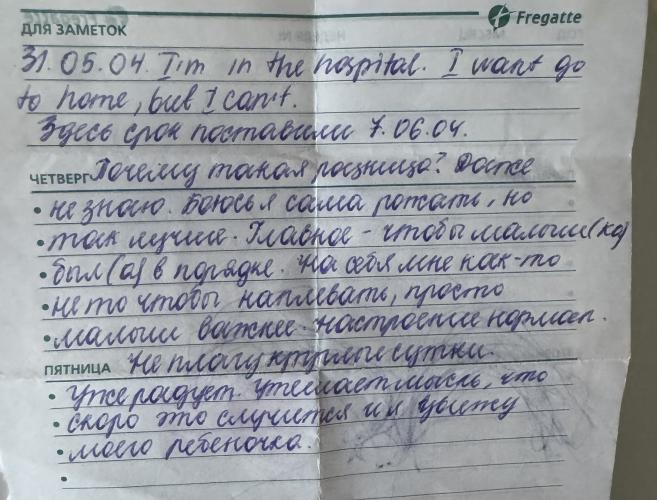 Fregatte
ДЛЯ ЗАМЕТОК
31.05.04. I'm in the hospital. I want go
to home, but I can't.
Здесь срок поставили 7.06.04.
Почему такая разница? Даже
ЧЕТВЕРГ
• не знаю. Боюсь я сама рожать, но
• так лучше. Главное - чтобы малыш(ка)
• был(а) в порядке. На себя мне как-то
• не то чтобы наплевать, просто
• малыш важнее. Настроение нормал.
ПЯТНИЦА Не плачу круглые сутки.
• Уже радует. Утешает мысль, что
• скоро это случится и я увижу
• моего ребеночка.
•